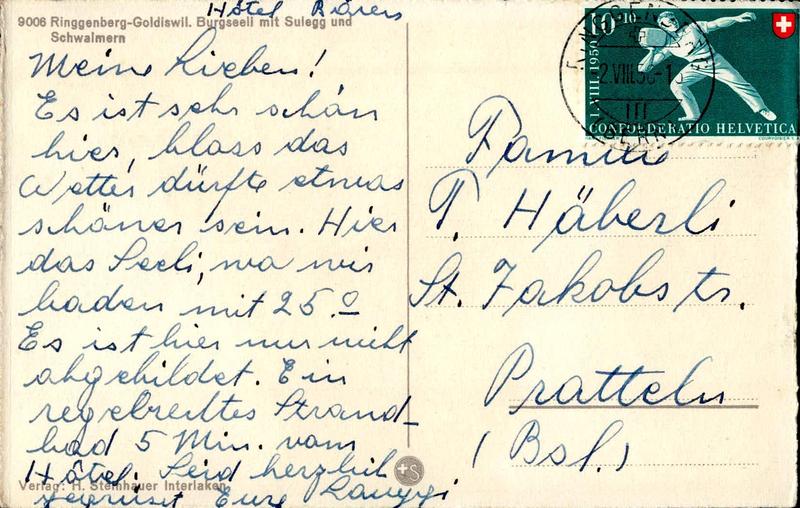 Hôtel Bären
9006 Ringgenberg-Goldiswil. Burgseeli mit Sulegg und
Schwalmern
Meine Lieben!
Es ist sehr schön
hier, blass das
Wetter dürfte etwas
schöner sein. Hier
das Seeli, wo wir
baden mit 25.º
Es ist hier nur nicht
abgebildet. Ein
regelrechtes Strand-
bad 5 Min. vom
Hôtel. Seid herzlich
gegrüsst Eure
Verlag: H. Steinhauer Interlaken
S
10+10
1.VIII.1950
CONFOEDERATIO HELVETICA
RINGGENBERG
2.VIII.50-1
Familie
T. Häberli
St. Jakobstr.
Pratteln
(Bsl.)